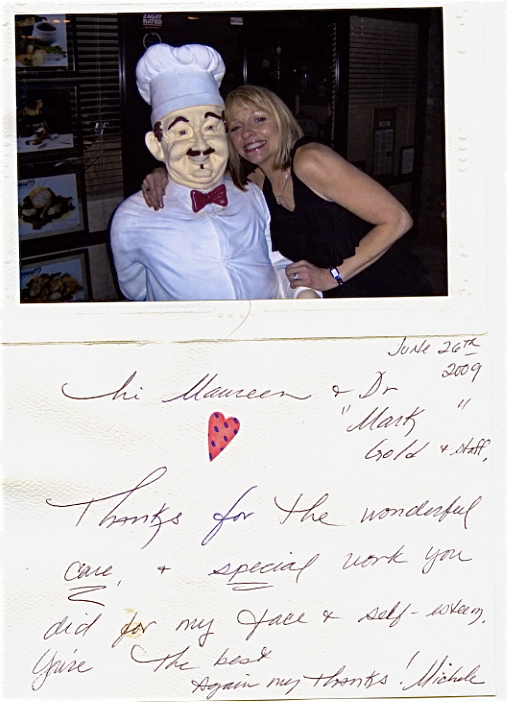 ZAGAT
RATED
June 26th
2009
hi Maureen & Dr
"Mark "
Gold & staff,
Thanks for the wonderful
care, & special work you
did for my face & self-esteem.
You're the best
Again my thanks! Michele